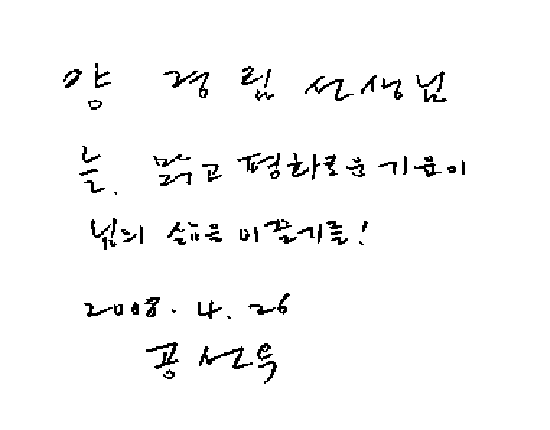 양 경림 선생님
늘, 맑고 평화로운 기운이
님의 삶을 이끌기를!
2008. 4. 26
공선옥